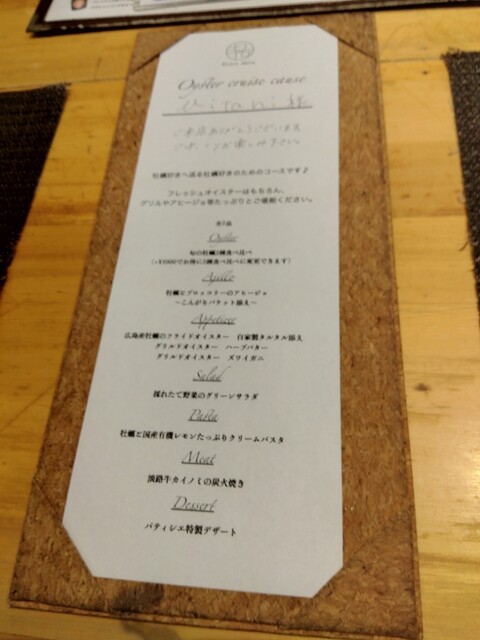 Oyster cruise cause
Vitani 様
ご来店ありがとうございます
牡蠣好きへ送る牡蠣好きのためのコースです♪
フレッシュオイスターはもちろん、
グリルやアヒージョ等たっぷりとご堪能ください。
全7品
Oyster
旬の牡蠣3種食べ比べ
Ajillo
牡蠣とブロッコリーのアヒージョ
〜こんがりバケット添え〜
Appetizer
広島産牡蠣のフライドオイスター 自家製タルタル添え
グリルドオイスター ハーブバター
グリルドオイスター ズワイガニ
Salad
採れたて野菜のグリーンサラダ
Pasta
牡蠣と国産有機レモンたっぷりクリームパスタ
Meat
淡路牛カイノミの炭火焼き
Dessert
パティシエ特製デザート